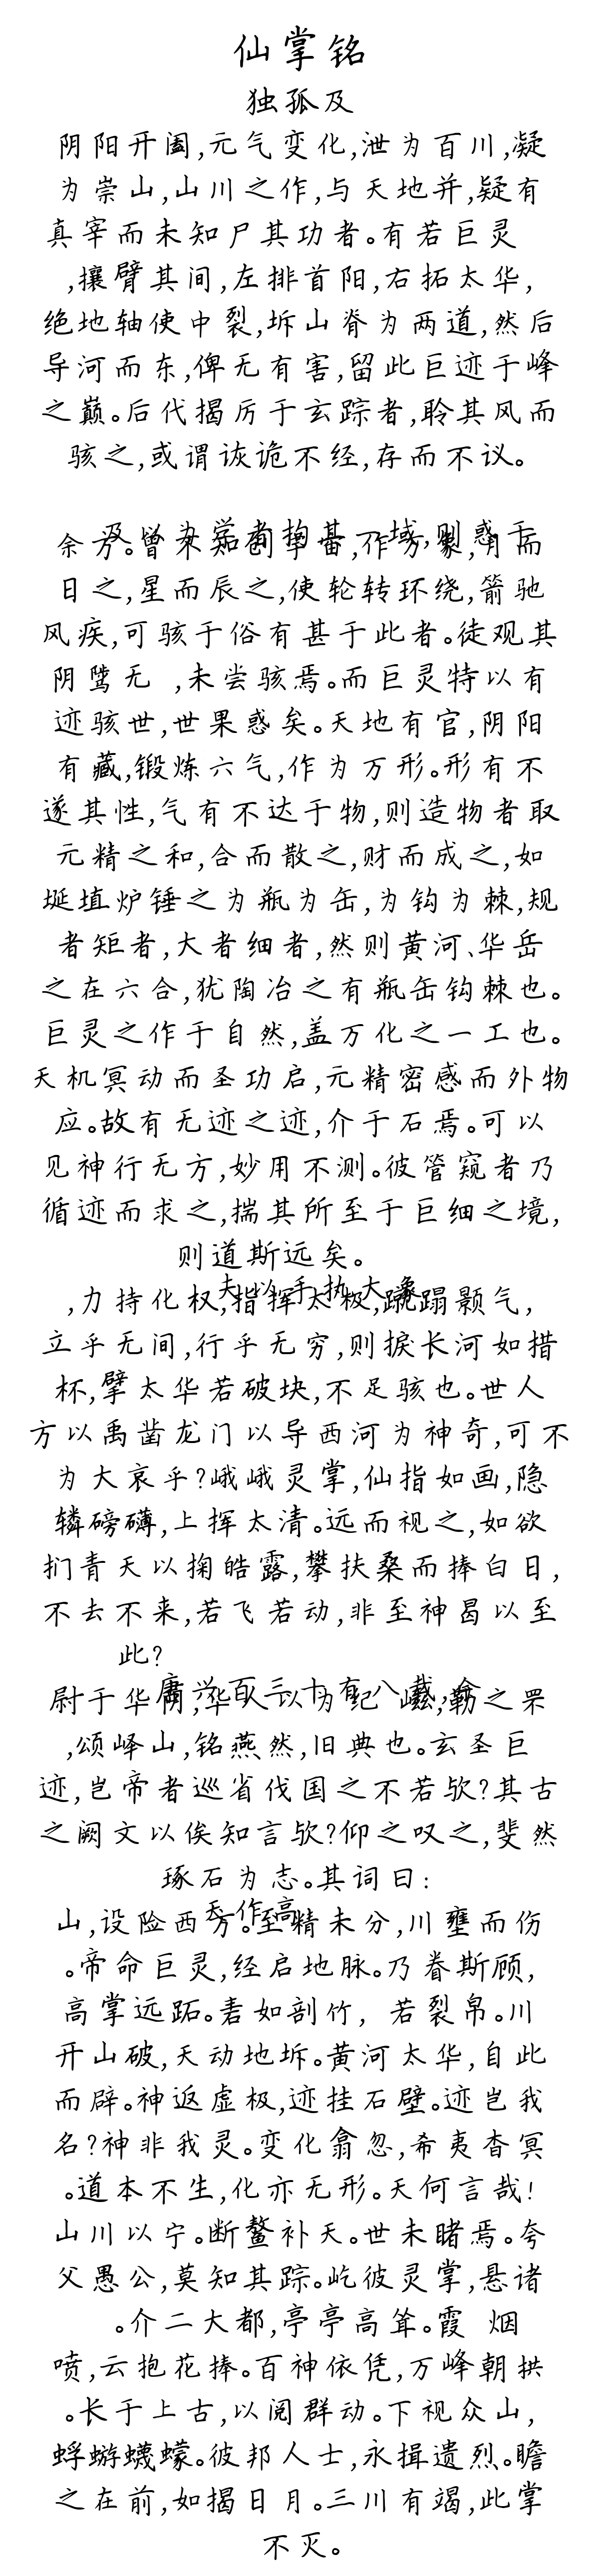 仙掌铭
独孤及
阴阳开阖,元气变化,泄为百川,凝
为崇山,山川之作,与天地并,疑有
真宰而未知尸其功者。有若巨灵
,攘臂其间,左排首阳,右拓太华,
绝地轴使中裂,坼山脊为两道,然后
导河而东,俾无有害,留此巨迹于峰
之巅。后代揭厉于玄踪者,聆其风而
骇之,或谓诙诡不经,存而不议。
及以为学者拘其一域,则惑于
余方。曾未知创宇宙,作万象,月而
日之,星而辰之,使轮转环绕,箭驰
风疾,可骇于俗有甚于此者。徒观其
阴骘无 ,未尝骇焉。而巨灵特以有
迹骇世,世果惑矣。天地有官,阴阳
有藏,锻炼六气,作为万形。形有不
遂其性,气有不达于物,则造物者取
元精之和,合而散之,财而成之,如
埏埴炉锤之为瓶为缶,为钩为棘,规
者矩者,大者细者,然则黄河、华岳
之在六合,犹陶冶之有瓶缶钩棘也。
巨灵之作于自然,盖万化之一工也。
天机冥动而圣功启,元精密感而外物
应。故有无迹之迹,介于石焉。可以
见神行无方,妙用不测。彼管窥者乃
循迹而求之,揣其所至于巨细之境,
则道斯远矣。
夫以手执大象
,力持化权,指挥太极,蹴蹋颢气,
立乎无间,行乎无穷,则捩长河如措
杯,擘太华若破块,不足骇也。世人
方以禹凿龙门以导西河为神奇,可不
为大哀乎?峨峨灵掌,仙指如画,隐
辚磅礴,上挥太清。远而视之,如欲
扪青天以掬皓露,攀扶桑而捧白日,
不去不来,若飞若动,非至神曷以至
此?
唐兴百三十有八载,余
尉于华阴,华人以为纪 嶷,勒之罘
,颂峄山,铭燕然,旧典也。玄圣巨
迹,岂帝者巡省伐国之不若欤?其古
之阙文以俟知言欤?仰之叹之,斐然
琢石为志。其词曰:
天作高
山,设险西方。至精未分,川壅而伤
。帝命巨灵,经启地脉。乃眷斯顾,
高掌远跖。砉如剖竹, 若裂帛。川
开山破,天动地坼。黄河太华,自此
而辟。神返虚极,迹挂石壁。迹岂我
名?神非我灵。变化翕忽,希夷杳冥
。道本不生,化亦无形。天何言哉!
山川以宁。断鳌补天。世未睹焉。夸
父愚公,莫知其踪。屹彼灵掌,悬诸
。介二大都,亭亭高耸。霞 烟
喷,云抱花捧。百神依凭,万峰朝拱
。长于上古,以阅群动。下视众山,
蜉蝣蠛蠓。彼邦人士,永揖遗烈。瞻
之在前,如揭日月。三川有竭,此掌
不灭。